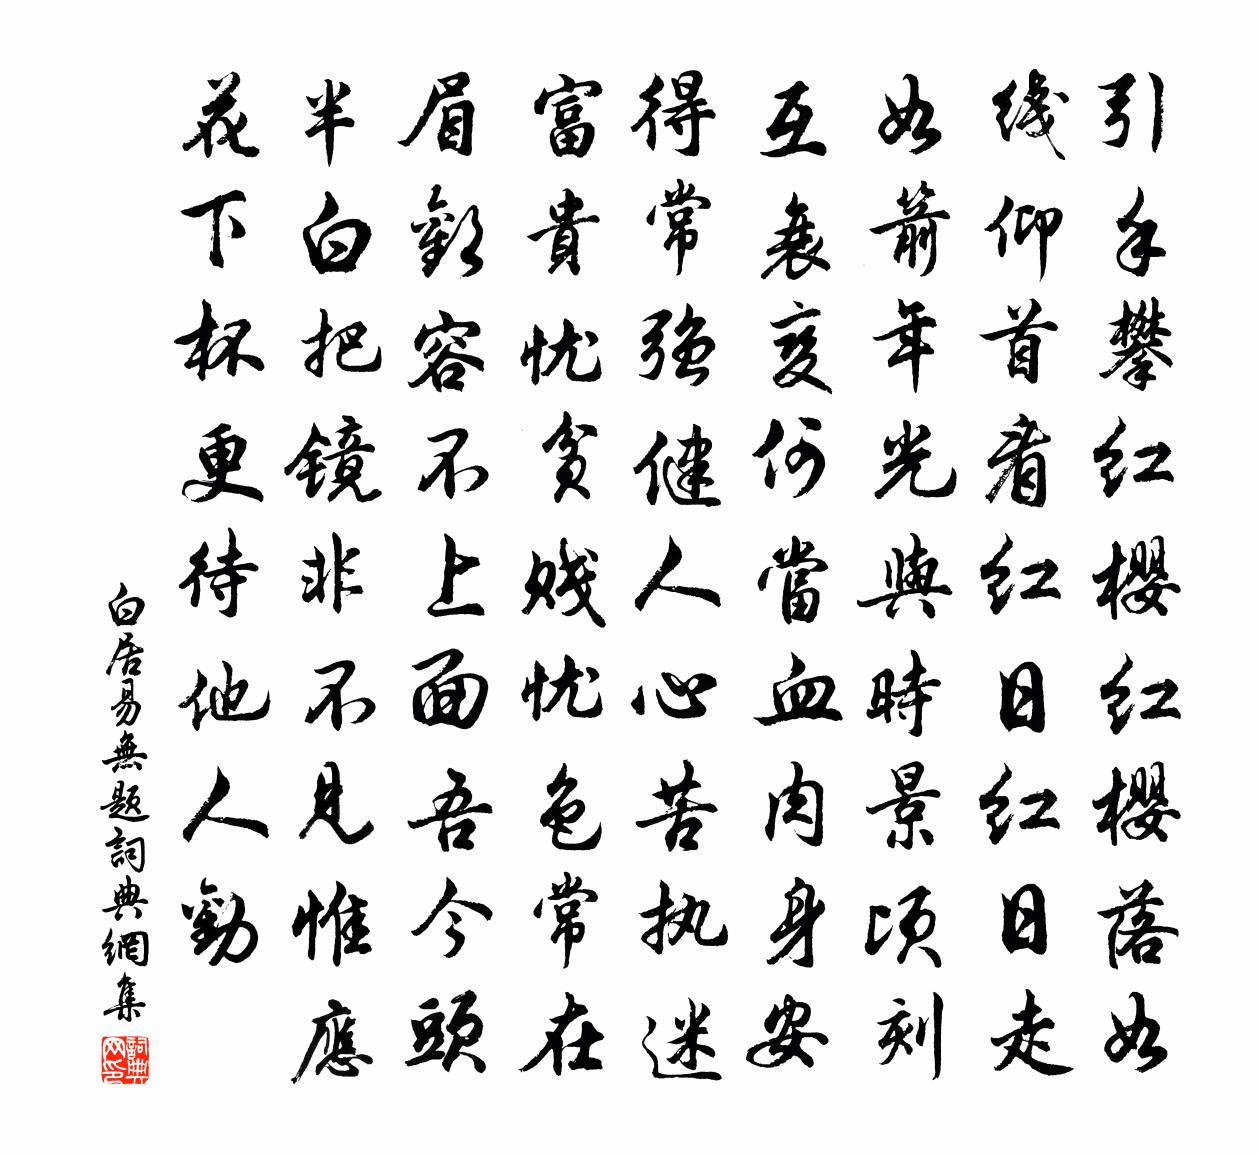 引手攀红櫻红櫻落如
线仰首看红日红日走
如箭年光與時景頃刻
互衰变何當血肉身安
得常强健人心苦执迷
富貴忧贫贱忧色常在
眉歡容不上面吾今頭
半白把镜非不见惟應
花下杯更待他人勸
白居易無题詞典網集